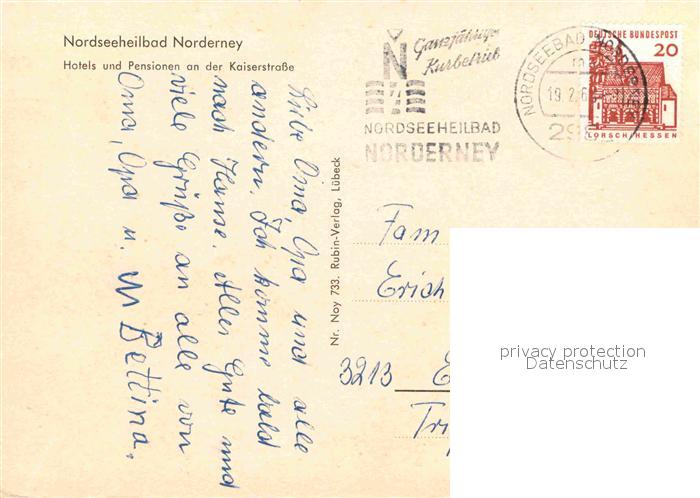 Nordseeheilbad Norderney
Hotels und Pensionen an der Kaiserstraße
Liebe Oma, Opa und alle
andern. Ich komme bald
nach Hause. Alles Gute und
viele Grüße an alle von
Oma, Opa u. Bettina.
Nr. Noy 733. Rubin-Verlag, Lübeck
Ganzjähriger
Kurbetrieb
N
NORDSEEHEILBAD
NORDERNEY
NORDSEEBAD NORDERNEY
19.2.6
298
DEUTSCHE BUNDESPOST
20
LORSCH/HESSEN
Fam
Erich
3213 E
Tri
privacy protection
Datenschutz